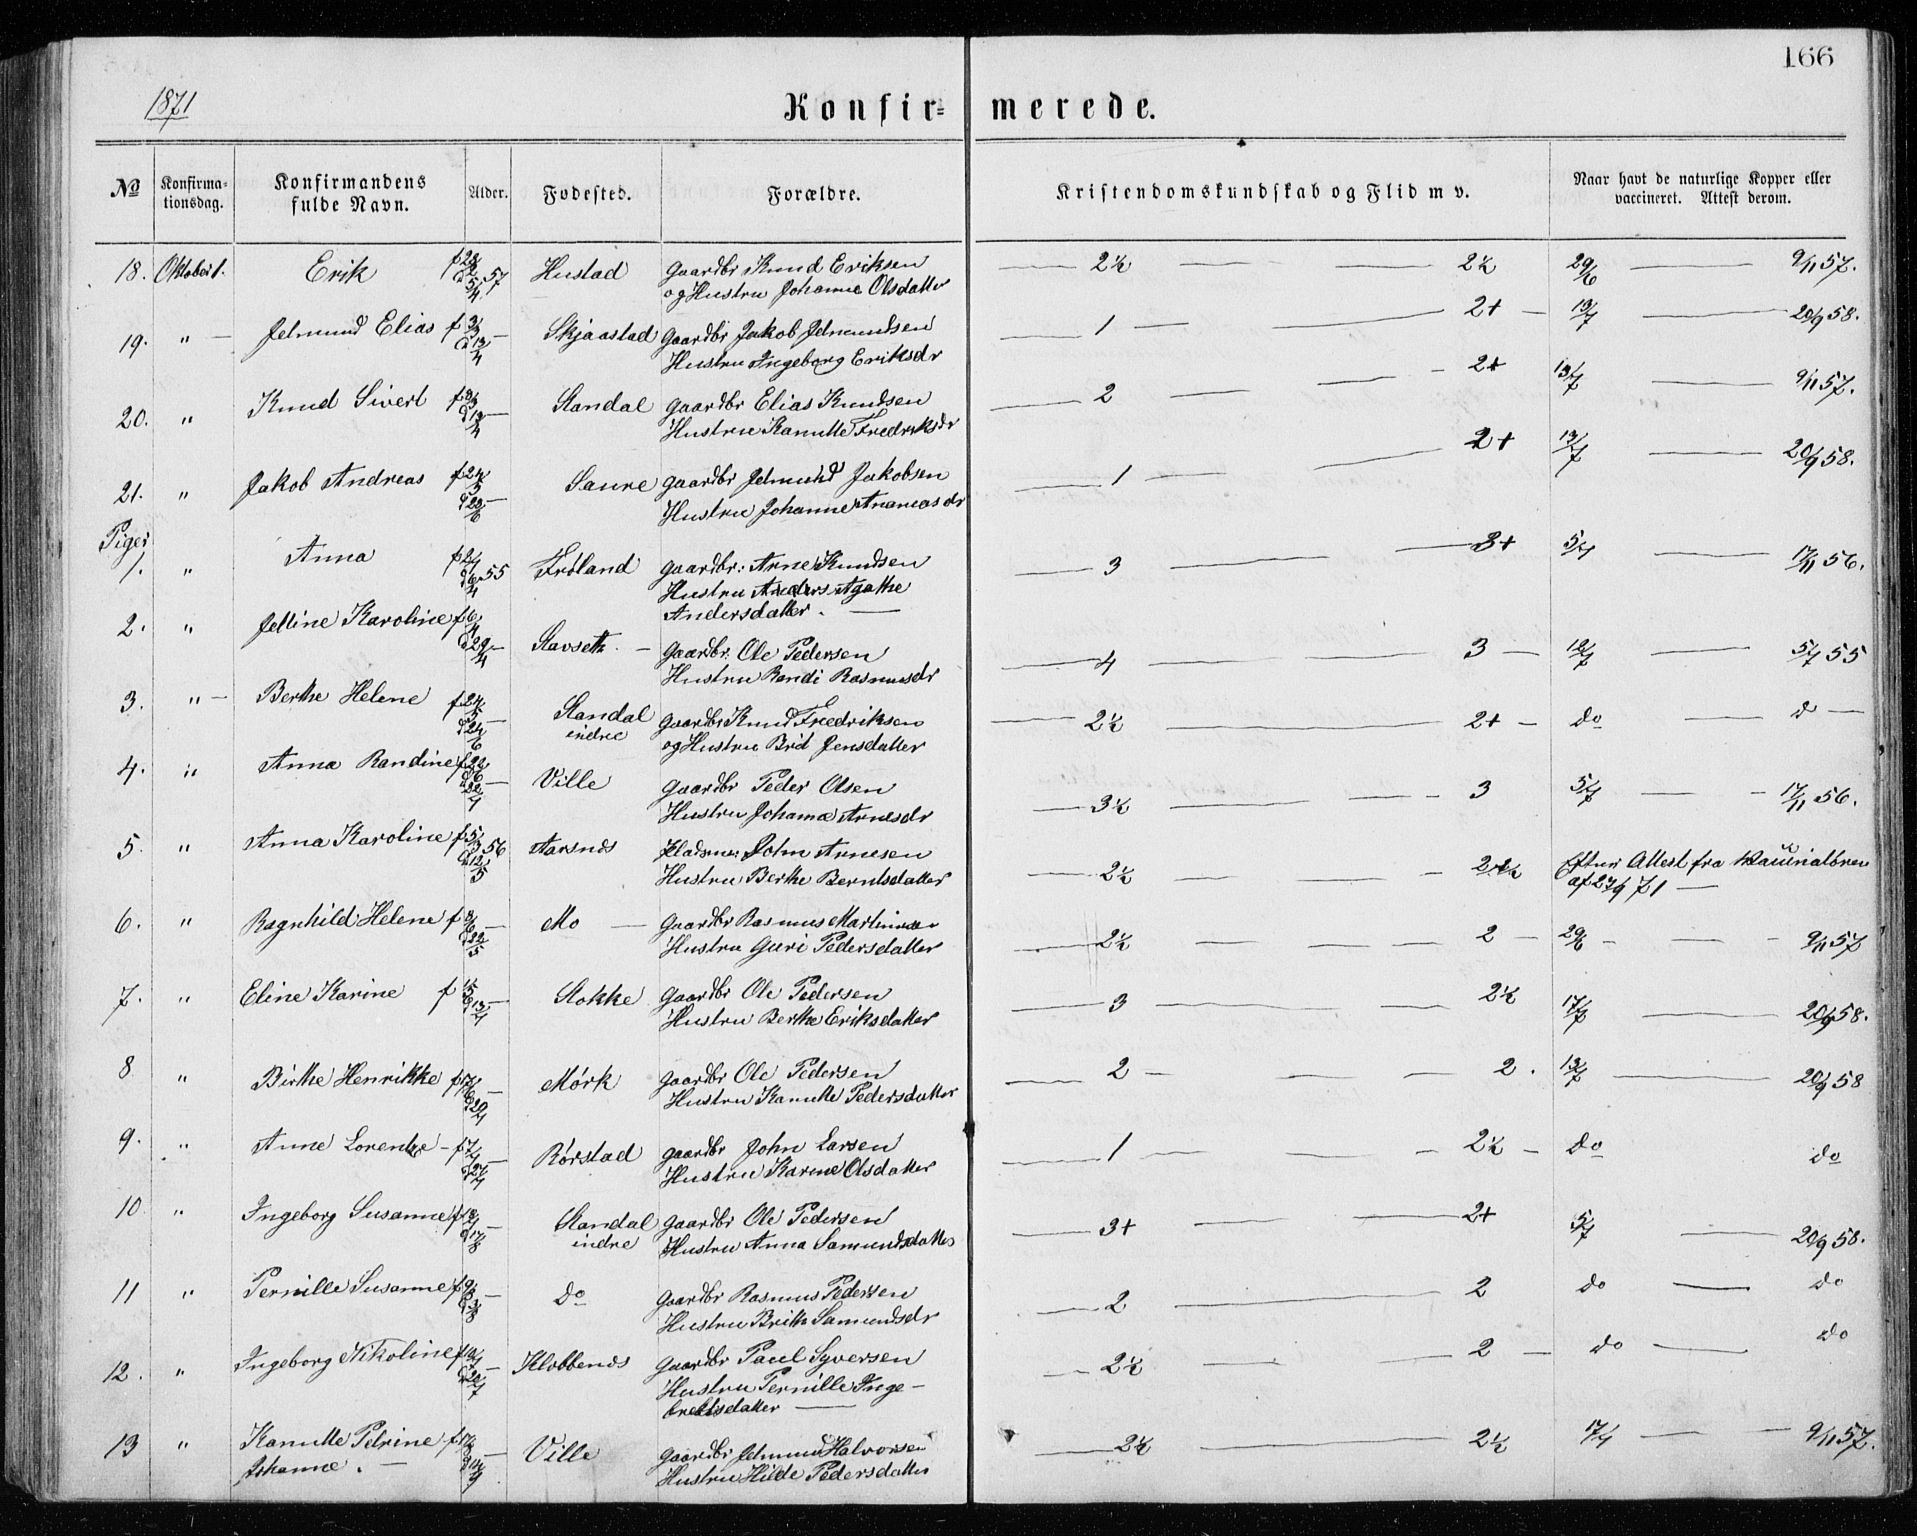 166
1871
Konfir= merede.
No Konfirma=tionsdag. Konfirmandens fulde Navn. Alder. Fødested. Forældre. Kristendomskundskab og Flid m v. Naar havt de naturlige Kopper eller vaccineret. Attest derom.
18. Oktober 1. Erik 57 Hustad Gaardbr Knud Eriksen 2½ 2½ 29/6 9/11 57.
og Hustru Johanne Olsdatter
19. " Jetmund Elias Skjaastad Gaardbr Jakob Jetmundsen 1 2+ 13/7 20/9 58.
Hustru Ingeborg Eriksdr
20. " Knud Sivert Standal gaardbr Elias Knudsen 2 2+ 13/7 9/11 57.
Hustru Kanutte Fredriksdr
21. " Jakob Andreas Saure gaardbr Jetmund Jakobsen 1 2+ 13/7 20/9 58.
Hustru Johanne Ananiasdr
Piger
1. " Anna 55 Frøland gaardbr: Arne Knudsen 3 3+ 5/7 17/11 56.
Hustru Anders Agathe
Andersdatter.
2. " Jettine Karoline Stavseth gaardbr. Ole Pedersen 4 3 12/7 5/7 55
Hustru Randi Rasmusdr
3. " Berthe Helene Standal indre gaardbr Knud Fredriksen 2½ 2+ do d
og Hustru Brit Jensdatter
4. " Anna Randine Ville gaardbr Peder Olsen 3½ 3 5/7 17/11 56.
Hustru Johanna Arnesdr
5. " Anna Karoline 56 Aarsnes John Arnesen 2½ Efter Attest fra
Hustru Berthe Berntsdatter af 23/9 71
6. " Ragnhild Helene Mo Gaardbr Rasmus Martinsen 2½ 2 29/6 9/11 57
Hustru Guri Pedersdatter
7. " Eline Karine Stokke Gaardbr Ole Pedersen 3 2½ 17/7 20/9 58.
Hustru Berthe Eriksdatter
8 " Birthe Henrikke Mørk gaardbr Ole Pedersen 2 2. 13/7 20/9 58
Hustru Kanutte Pedersdatter
9. " Anne Lorentze Rørstad gaardbr John Larsen 1 2½ do do
Hustru Karine Olsdatter
10 " Ingeborg Susanne Standal indre gaardbr Ole Pedersen 3+ 2+ 5/7 20/9 58.
Hustru Anna Samundsdatter
11 " Pernille Susanne do Gaardbr Rasmus Pedersen 2 2 do do
Hustru Brith Samundsdr
12. " Ingeborg Nikoline Klubbenes gaardbr Paul Syversen 2½ 2 do do
Hustru Pernille Inge-
bretsdatter
13 " Kanutte Petrine Ville gaardbr Jetmund Halvorsen 2½ 2½ 17/7 9/11 57.
Johanne. Hustru Hilde Pedersdatter